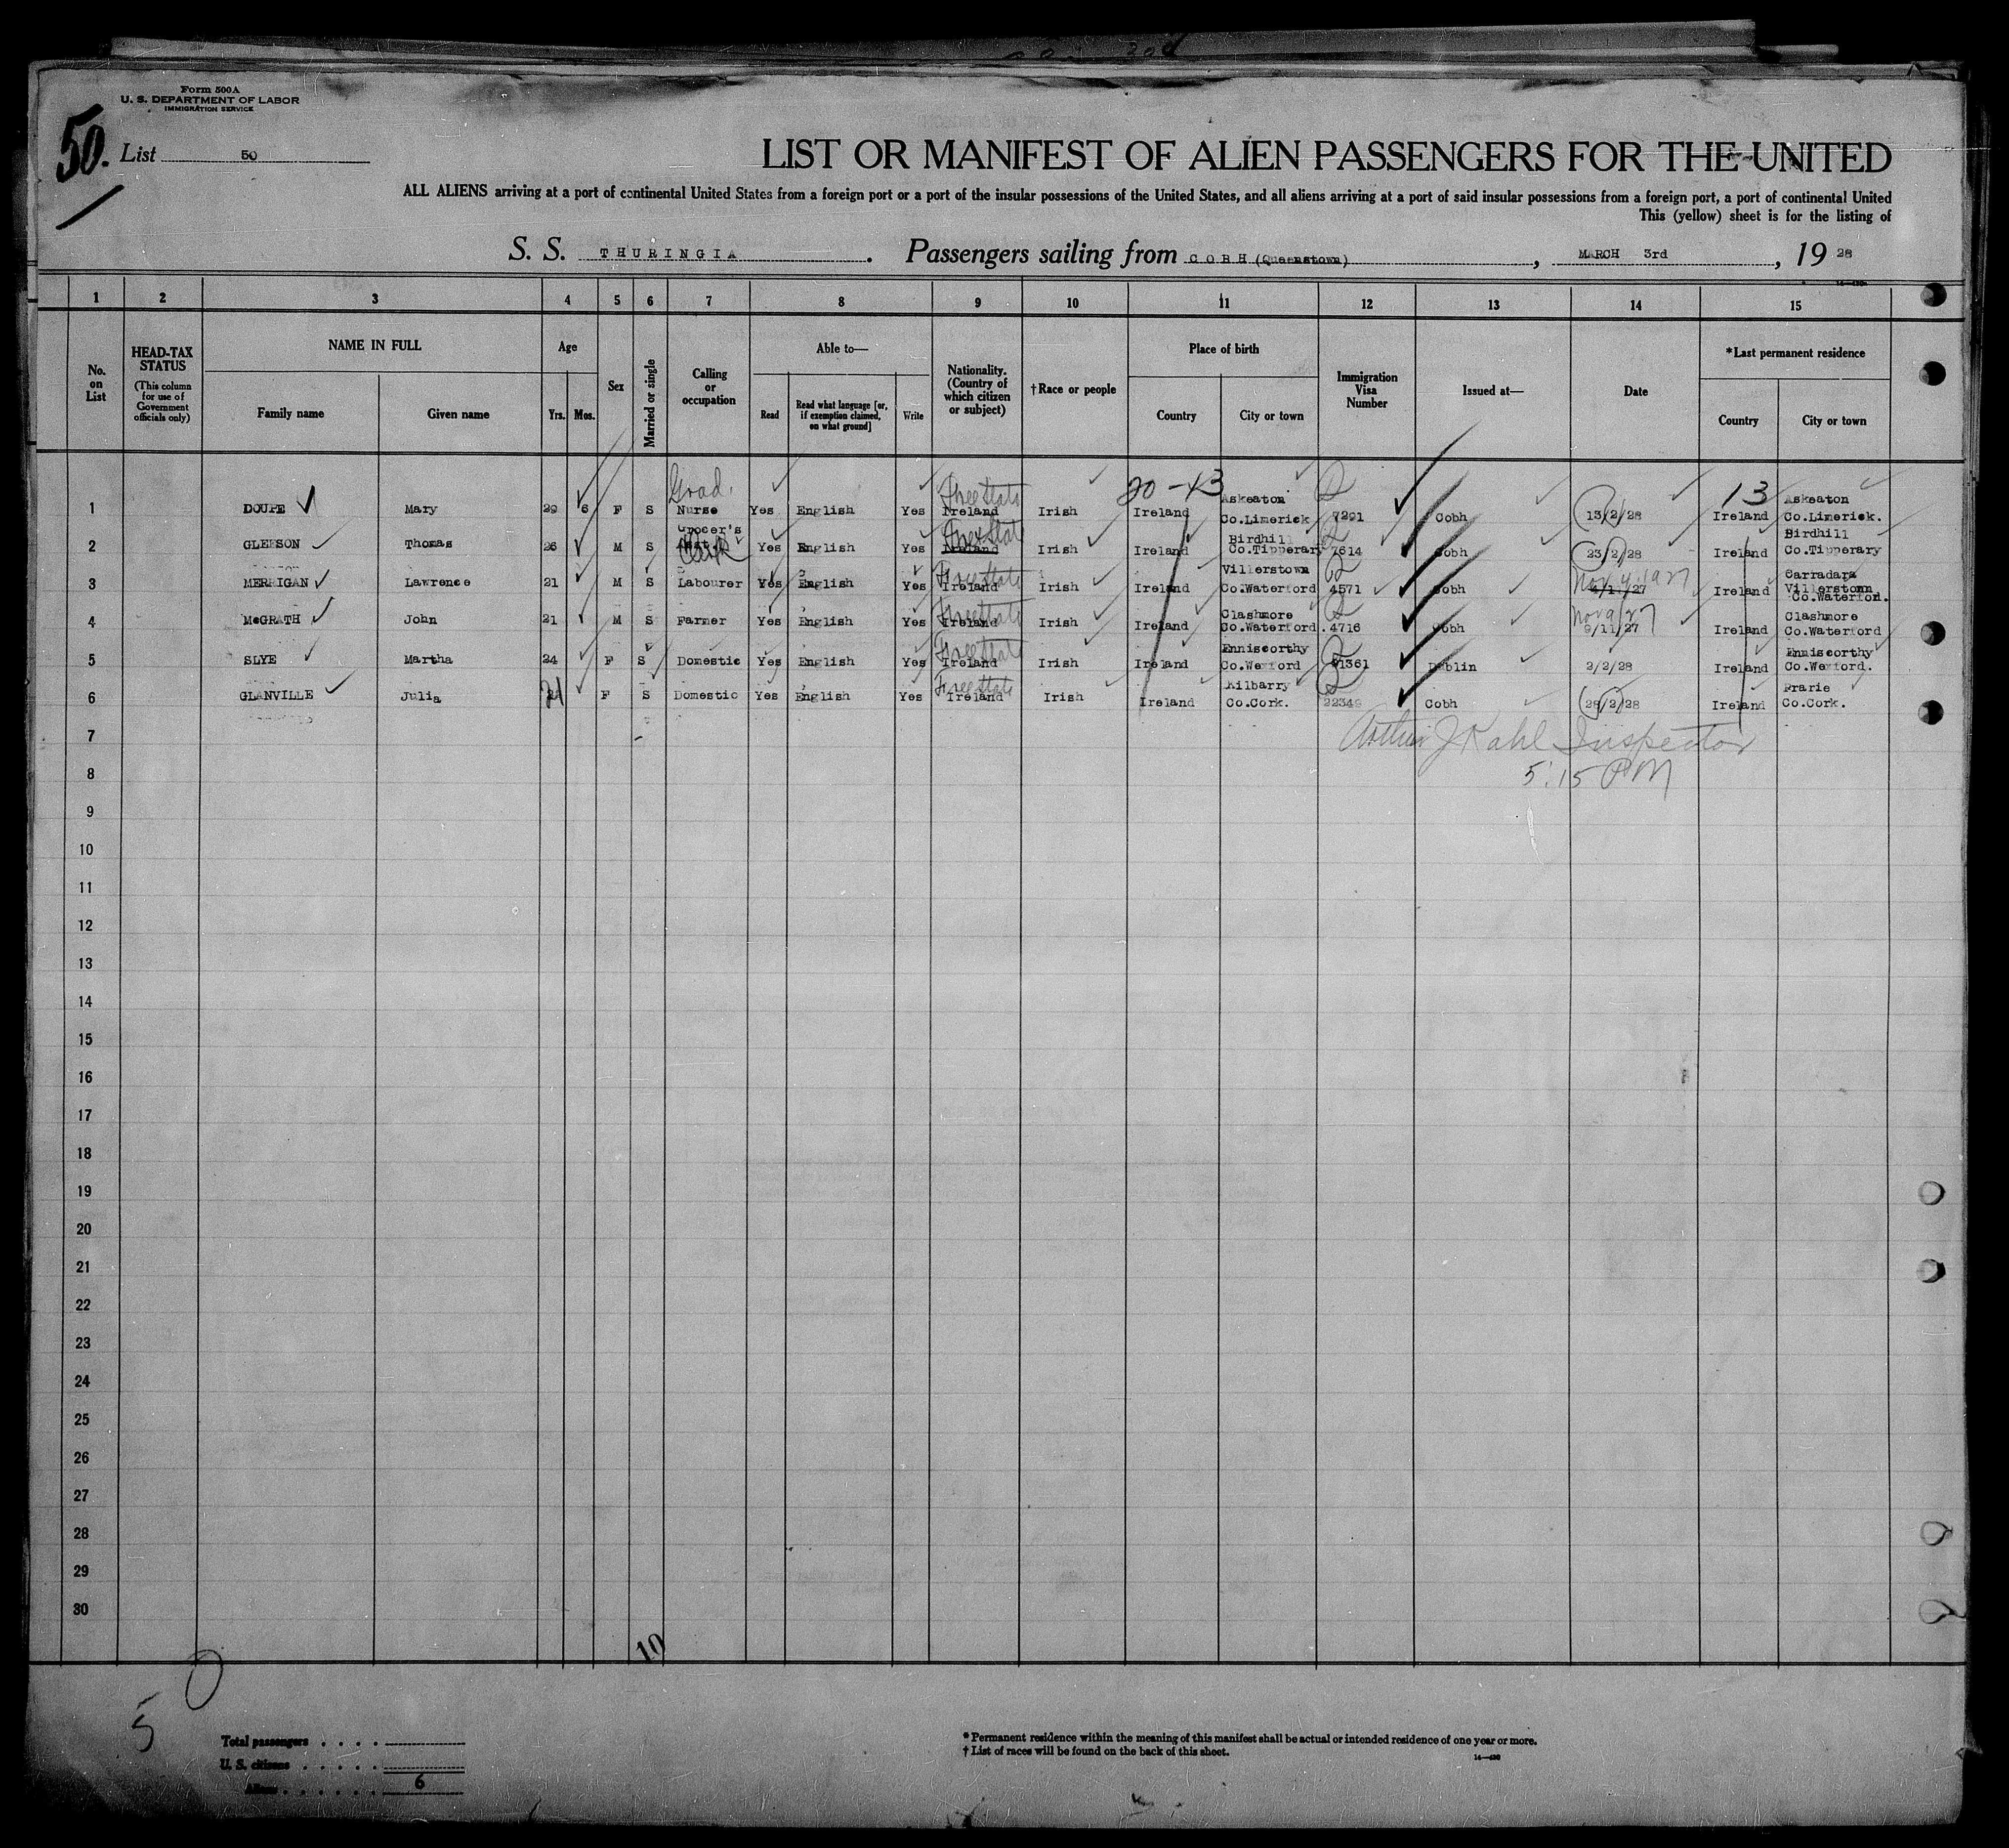 Form 500A
U. S. DEPARTMENT OF LABOR
IMMIGRATION SERVICE
50.
List 50
LIST OR MANIFEST OF ALIEN PASSENGERS FOR THE UNITED
ALL ALIENS arriving at a port of continental United States from a foreign port or a port of the insular possessions of the United States, and all aliens arriving at a port of said insular possessions from a foreign port, a port of continental United
This (yellow) sheet is for the listing of
S. S. THURINGIA. Passengers sailing from COBH (Queenstown), MARCH 3rd, 1928
1 2 3 4 5 6 7 8 9 10 11 12 13 14 15
No. on List
HEAD-TAX STATUS (This column for use of Government officials only)
NAME IN FULL
Family name Given name
Age
Yrs. Mos.
Sex
Married or single
Calling or occupation
Able to—
Read Read what language [or, if exemption claimed, on what ground] Write
Nationality. (Country of which citizen or subject)
†Race or people
Place of birth
Country City or town
Immigration Visa Number
Issued at—
Date
*Last permanent residence
Country City or town
20-43 13
1 DOUPE Mary 29 6 F S Grad. Nurse Yes English Yes Free State Ireland Irish Ireland Askeaton Co.Limerick 7291 Cobh 13/2/28 Ireland Askeaton Co.Limerick.
2 GLEESON Thomas 26 M S Grocer's Clerk Yes English Yes Free State Ireland Irish Ireland Birdhill Co.Tipperary 7614 Cobh 23/2/28 Ireland Birdhill Co.Tipperary
3 MERRIGAN Lawrence 21 M S Labourer Yes English Yes Free State Ireland Irish Ireland Villerstown Co.Waterford 4571 Cobh Nov 4, 1927 Ireland Carradara Villerstown Co.Waterford.
4 McGRATH John 21 M S Farmer Yes English Yes Free State Ireland Irish Ireland Clashmore Co.Waterford. 4716 Cobh Nov 9/27 9/11/27 Ireland Clashmore Co.Waterford
5 SLYE Martha 24 F S Domestic Yes English Yes Free State Ireland Irish Ireland Enniscorthy Co.Wexford 91361 Dublin 2/2/28 Ireland Enniscorthy Co.Wexford.
6 GLANVILLE Julia 21 F S Domestic Yes English Yes Free State Ireland Irish Ireland Kilbarry Co.Cork. 22349 Cobh 28/2/28 Ireland Prarie Co.Cork.
7
Arthur J Kahl Inspector
8
5:15 PM
9
10
11
12
13
14
15
16
17
18
19
20
21
22
23
24
25
26
27
28
29
30
10
5 0
Total passengers
U. S. citizens
Aliens 6
* Permanent residence within the meaning of this manifest shall be actual or intended residence of one year or more.
† List of races will be found on the back of this sheet.